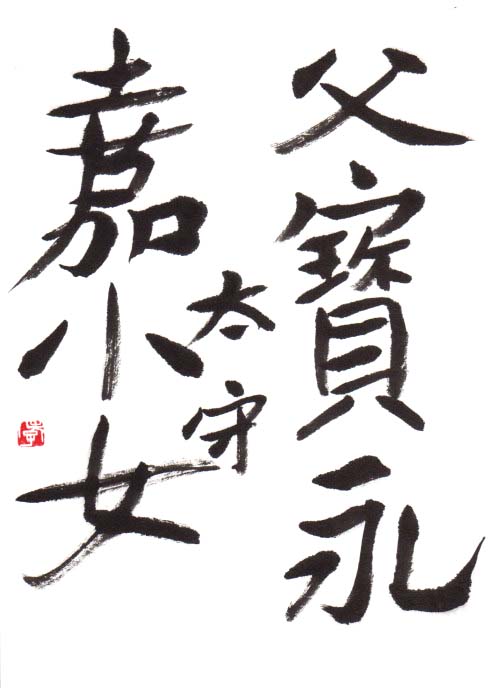 父寶永
嘉小女
太守